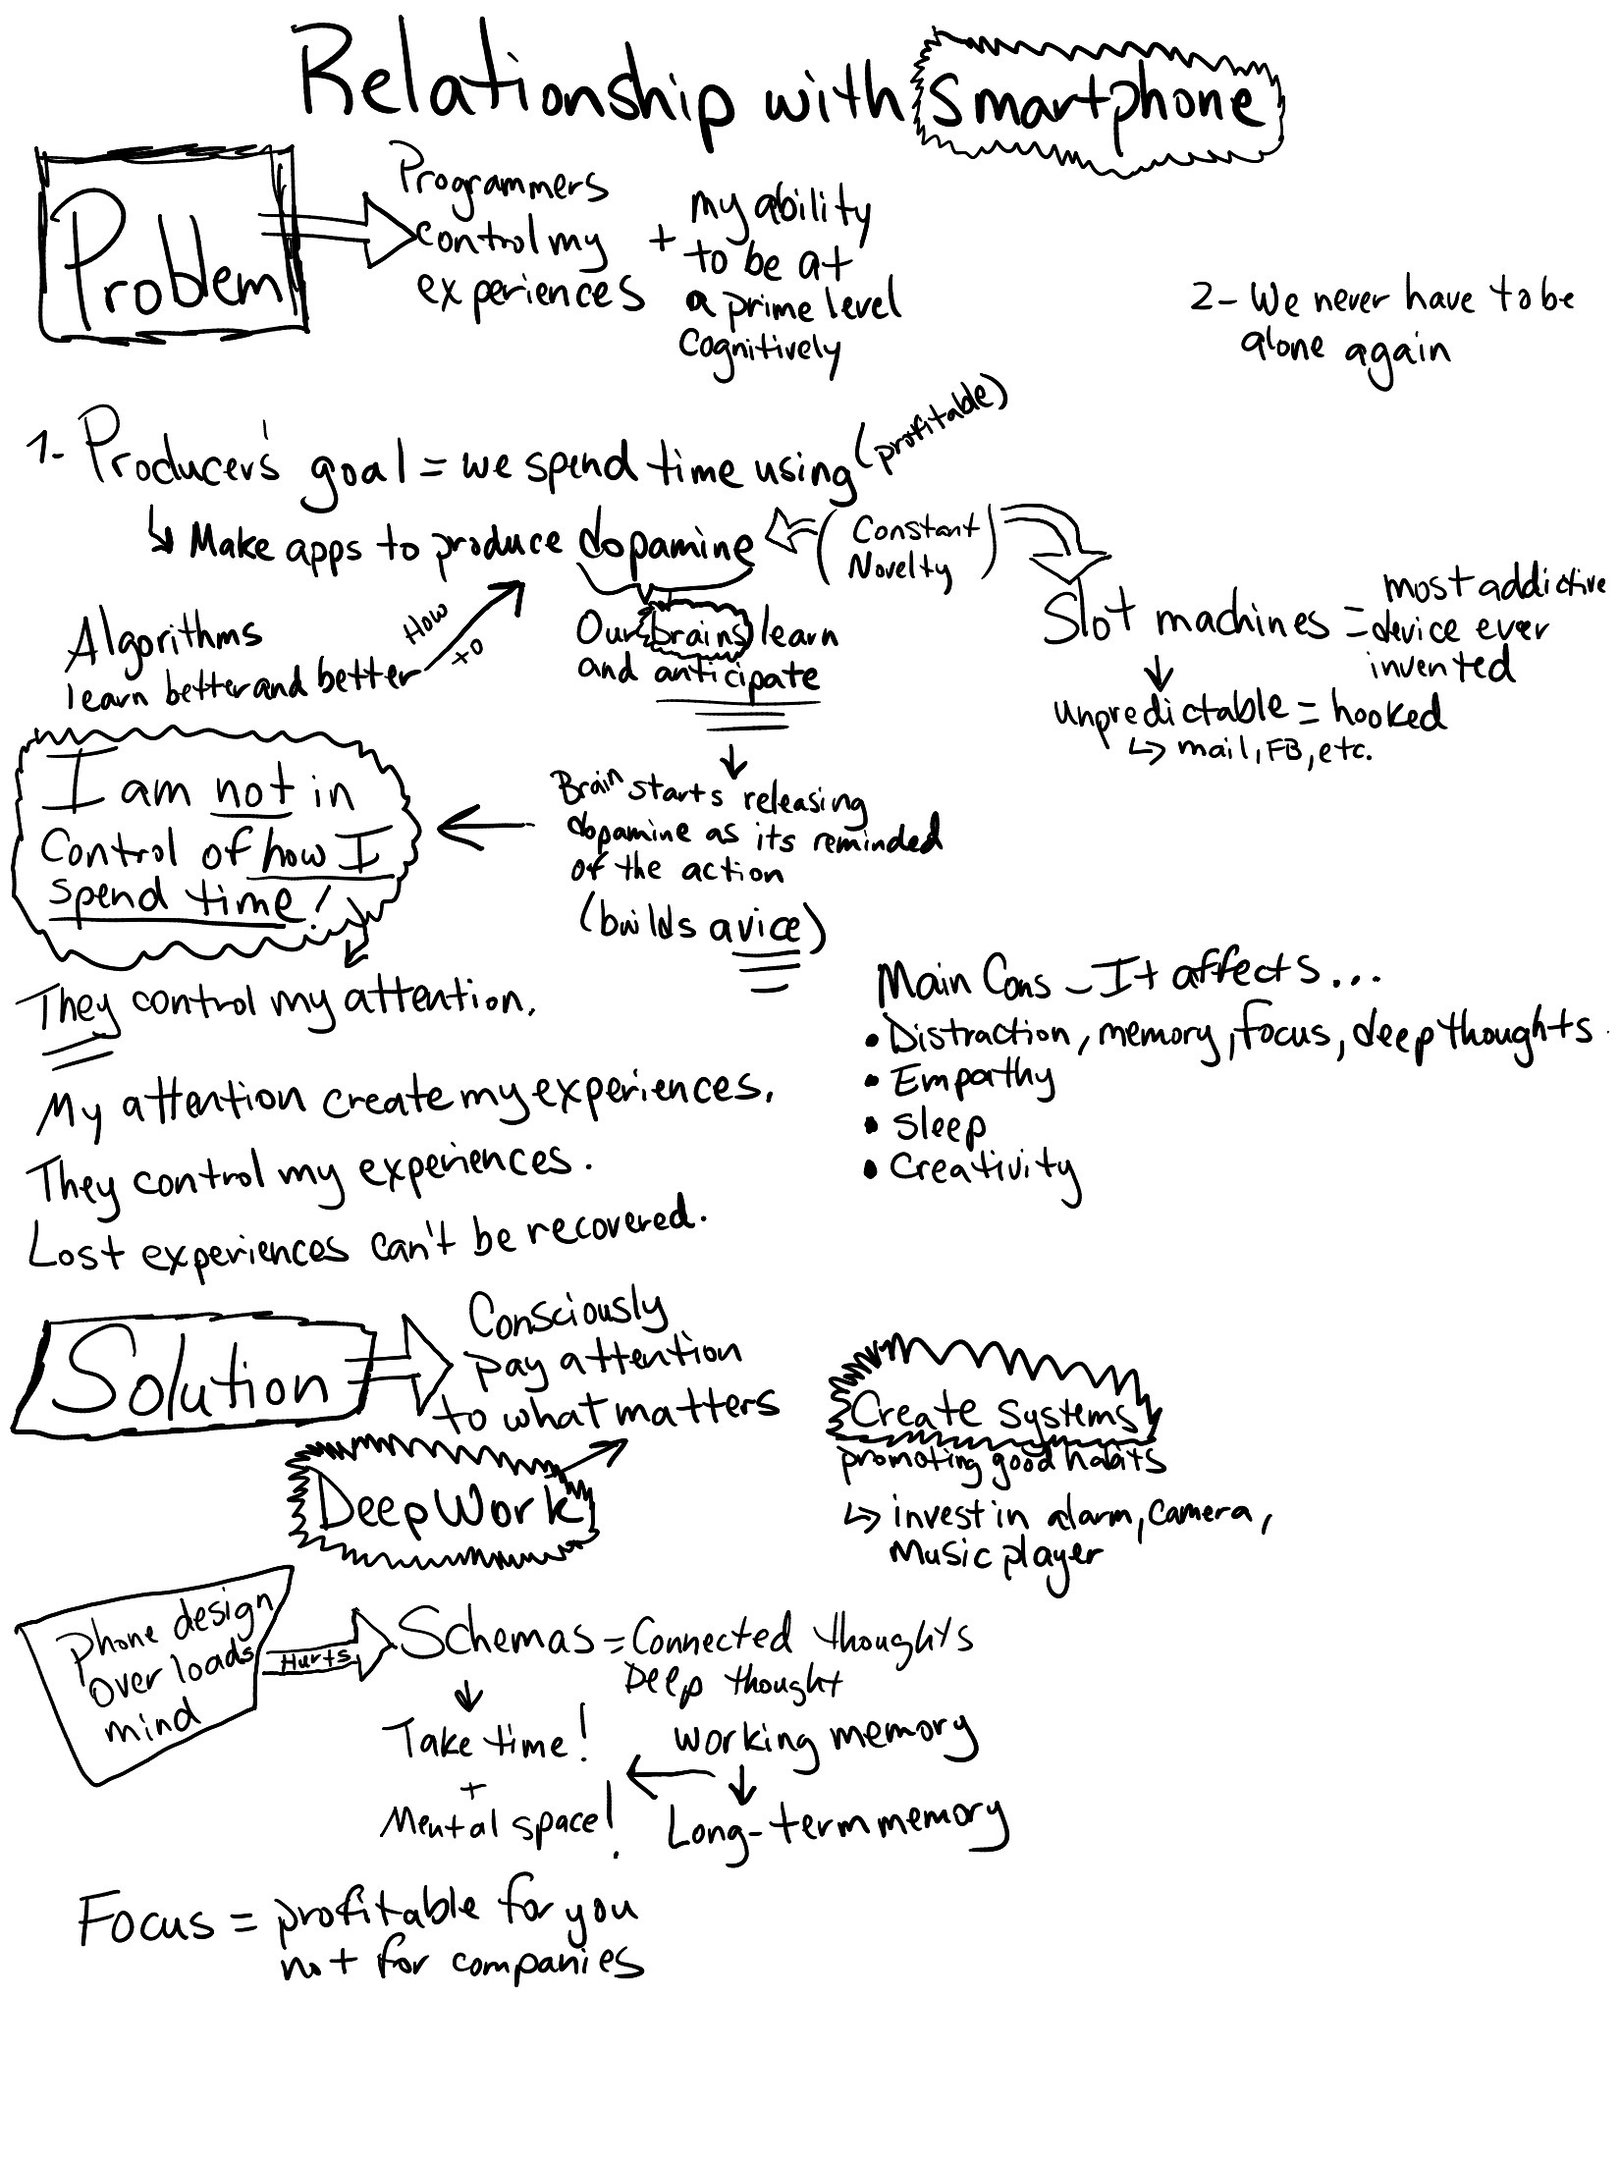 Relationship with Smartphone
Problem
Programmers
control my
experiences
+
my ability
to be at
a prime level
Cognitively
2- We never have to be
alone again
1- Producer's goal = we spend time using (profitable)
↳ Make apps to produce dopamine
(Constant
Novelty)
Slot machines =
most addictive
device ever
invented
↓
unpredictable = hooked
↳ mail, FB, etc.
Algorithms
learn better and better
How
to
Our brains learn
and anticipate
↓
Brain starts releasing
dopamine as its reminded
of the action
(builds a vice)
←
I am not in
Control of how I
spend time!
They control my attention.
My attention create my experiences.
They control my experiences.
Lost experiences can't be recovered.
Main Cons - It affects...
• Distraction, memory, focus, deep thoughts.
• Empathy
• Sleep
• Creativity
Solution
Consciously
pay attention
to what matters
Deep Work
Create systems
promoting good habits
↳ invest in alarm, camera,
Music player
Phone design
over loads
mind
Hurts
Schemas = Connected thoughts
Deep thought
↓
Take time!
+
Mental space!
working memory
← ↓
Long-term memory
Focus = profitable for you
not for companies